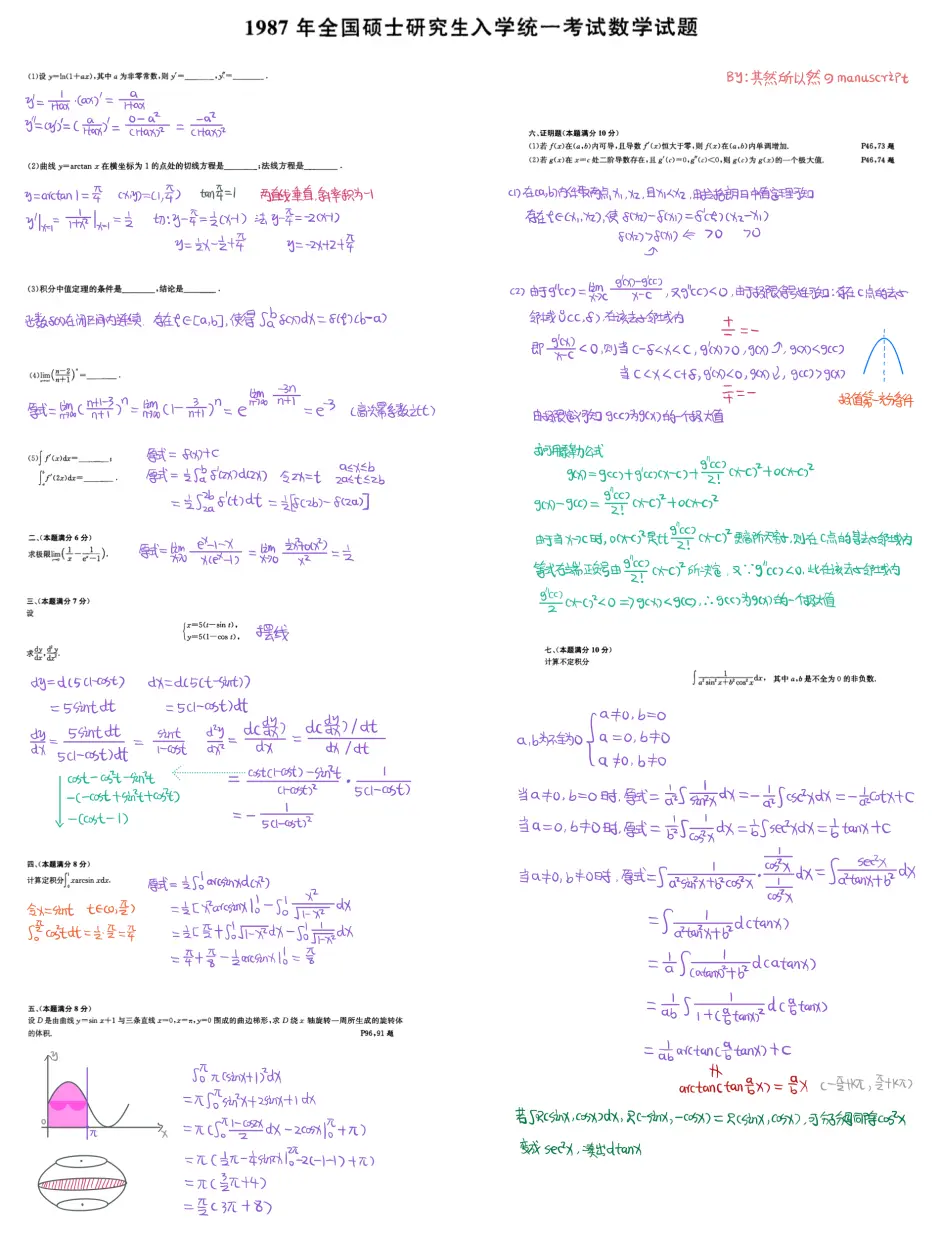 1987 年全国硕士研究生入学统一考试数学试题
(1)设 y=ln(1+ax),其中 a 为非零常数,则 y′=______,y″=______.
y′= 1/(1+ax) ·(ax)′ = a/(1+ax)
y″=(y′)′=( a/(1+ax) )′= (0-a²)/(1+ax)² = -a²/(1+ax)²
(2)曲线 y=arctan x 在横坐标为 1 的点处的切线方程是______;法线方程是______.
y=arctan1=π/4 (x,y)=(1,π/4) tanπ/4=1 两直线垂直,斜率积为-1
y′|x=1 = 1/(1+x²)|x=1 = 1/2 切:y-π/4=1/2(x-1) 法:y-π/4=-2(x-1)
y=1/2x-1/2+π/4 y=-2x+2+π/4
(3)积分中值定理的条件是______,结论是______.
函数f(x)在闭区间内连续. 存在ξ∈[a,b],使得∫ₐᵇ f(x)dx=f(ξ)(b-a)
(4)lim n→∞ ((n-2)/(n+1))ⁿ=______.
原式=lim n→∞ ((n+1-3)/(n+1))ⁿ=lim n→∞ (1- 3/(n+1))ⁿ = e^(lim n→∞ -3n/(n+1)) = e⁻³ (高次幂系数之比)
(5)∫f′(x)dx=______; 原式= f(x)+C
∫ₐᵇ f′(2x)dx=______. 原式=1/2∫ₐᵇ f′(2x)d(2x) 令2x=t a≤x≤b 2a≤t≤2b
=1/2∫₂ₐ²ᵇ f′(t)dt =1/2[f(2b)-f(2a)]
二、(本题满分 6 分)
求极限lim x→0 (1/x - 1/(eˣ-1)). 原式=lim x→0 (eˣ-1-x)/(x(eˣ-1)) =lim x→0 (1/2x²+o(x²))/x² = 1/2
三、(本题满分 7 分)
设
{x=5(t-sin t),
y=5(1-cos t), 摆线
求dy/dx, d²y/dx².
dy=d(5(1-cost) dx=d(5(t-sint))
=5sintdt =5(1-cost)dt
dy/dx= 5sintdt/(5(1-cost)dt) = sint/(1-cost) d²y/dx² = d(dy/dx)/dx = (d(dy/dx)/dt)/(dx/dt)
cost-cos²t-sin²t = (cost(1-cost)-sin²t)/(1-cost)² · 1/(5(1-cost))
-(-cost+sin²t+cos²t)
-(cost-1) = - 1/(5(1-cost)²)
四、(本题满分 8 分)
计算定积分∫₀¹ xarcsin xdx. 原式=1/2∫₀¹ arcsinxd(x²)
令x=sint t∈(0,π/2) =1/2[x²arcsinx|₀¹-∫₀¹ x²/√(1-x²) dx
∫₀^(π/2) cos²tdt=1/2·π/2=π/4 =1/2[π/2+∫₀¹√(1-x²)dx-∫₀¹ 1/√(1-x²) dx
=π/4+π/8-1/2arcsinx|₀¹=π/8
五、(本题满分 8 分)
设 D 是由曲线 y=sin x+1 与三条直线 x=0,x=π,y=0 围成的曲边梯形,求 D 绕 x 轴旋转一周所生成的旋转体
的体积. P96,91 题
y
0 π x
∫₀^π π(sinx+1)²dx
=π∫₀^π sin²x+2sinx+1dx
=π(∫₀^π (1-cos2x)/2 dx-2cosx|₀^π+π)
=π(1/2π-1/4sin2x|₀^2π-2(-1-1)+π)
=π(3/2π+4)
=π/2(3π+8)
BY:其然所以然の manuscript
六、证明题(本题满分 10 分)
(1)若 f(x)在(a,b)内可导,且导数 f′(x)恒大于零,则 f(x)在(a,b)内单调增加. P45,73 题
(2)若 g(x)在 x=c 处二阶导数存在,且 g′(c)=0,g″(c)<0,则 g(c)为 g(x)的一个极大值. P46,74 题
(1)在(a,b)内任取两点x₁,x₂,且x₁<x₂,由拉格朗日中值定理可知
存在ξ∈(x₁,x₂),使 f(x₂)-f(x₁)=f′(ξ)(x₂-x₁)
f(x₂)>f(x₁) ⇐ >0 >0
(2) 由于g″(c)=lim x→c (g′(x)-g′(c))/(x-c),又g″(c)<0,由于极限保号性可知:存在c点的去心
邻域Ů(c,δ),在该去心邻域内
即 g′(x)/(x-c) <0,则当 c-δ<x<c, g′(x)>0, g(x)↗, g(x)<g(c) +/- = -
当 c<x<c+δ, g′(x)<0, g(x)↘, g(c)>g(x) -/+ = -
极值第一充分条件
由极限定义可知 g(c)为g(x)的一个极大值
亦可用泰勒公式
g(x)=g(c)+g′(c)(x-c)+ g″(c)/2! (x-c)²+o(x-c)²
g(x)-g(c)= g″(c)/2! (x-c)²+o(x-c)²
由于当x→c时,o(x-c)²是比 g″(c)/2! (x-c)²更高阶无穷小,则在c点的某去心邻域内
等式右端正负号由 g″(c)/2! (x-c)² 所决定,又∵g″(c)<0,此在该去心邻域内
g″(c)/2 (x-c)²<0 ⇒g(x)<g(c),∴g(c)为g(x)的一个极大值
七、(本题满分 10 分)
计算不定积分
∫ 1/(a²sin²x+b²cos²x) dx, 其中 a,b 是不全为 0 的非负数.
a,b为不全为0 { a≠0, b=0
a=0, b≠0
a≠0, b≠0
当a≠0,b=0时,原式= 1/a²∫ 1/sin²x dx=- 1/a²∫csc²xdx=- 1/a²cotx+C
当a=0,b≠0时,原式= 1/b²∫ 1/cos²x dx= 1/b∫sec²xdx= 1/b tanx+C
当a≠0,b≠0时,原式=∫ 1/(a²sin²x+b²cos²x) · (1/cos²x)/(1/cos²x) dx=∫ sec²x/(a²tanx+b²) dx
=∫ 1/(a²tan²x+b²) d(tanx)
= 1/a ∫ 1/((atanx)²+b²) d(atanx)
= 1/ab ∫ 1/(1+(a/b tanx)²) d(a/b tanx)
= 1/ab arctan(a/b tanx)+C
arctan(tan a/b x)= a/b x (-π/2+kπ, π/2+kπ)
若∫R(sinx,cosx)dx,R(-sinx,-cosx)=R(sinx,cosx),可分子分母同除cos²x
变成 sec²x,凑出dtanx